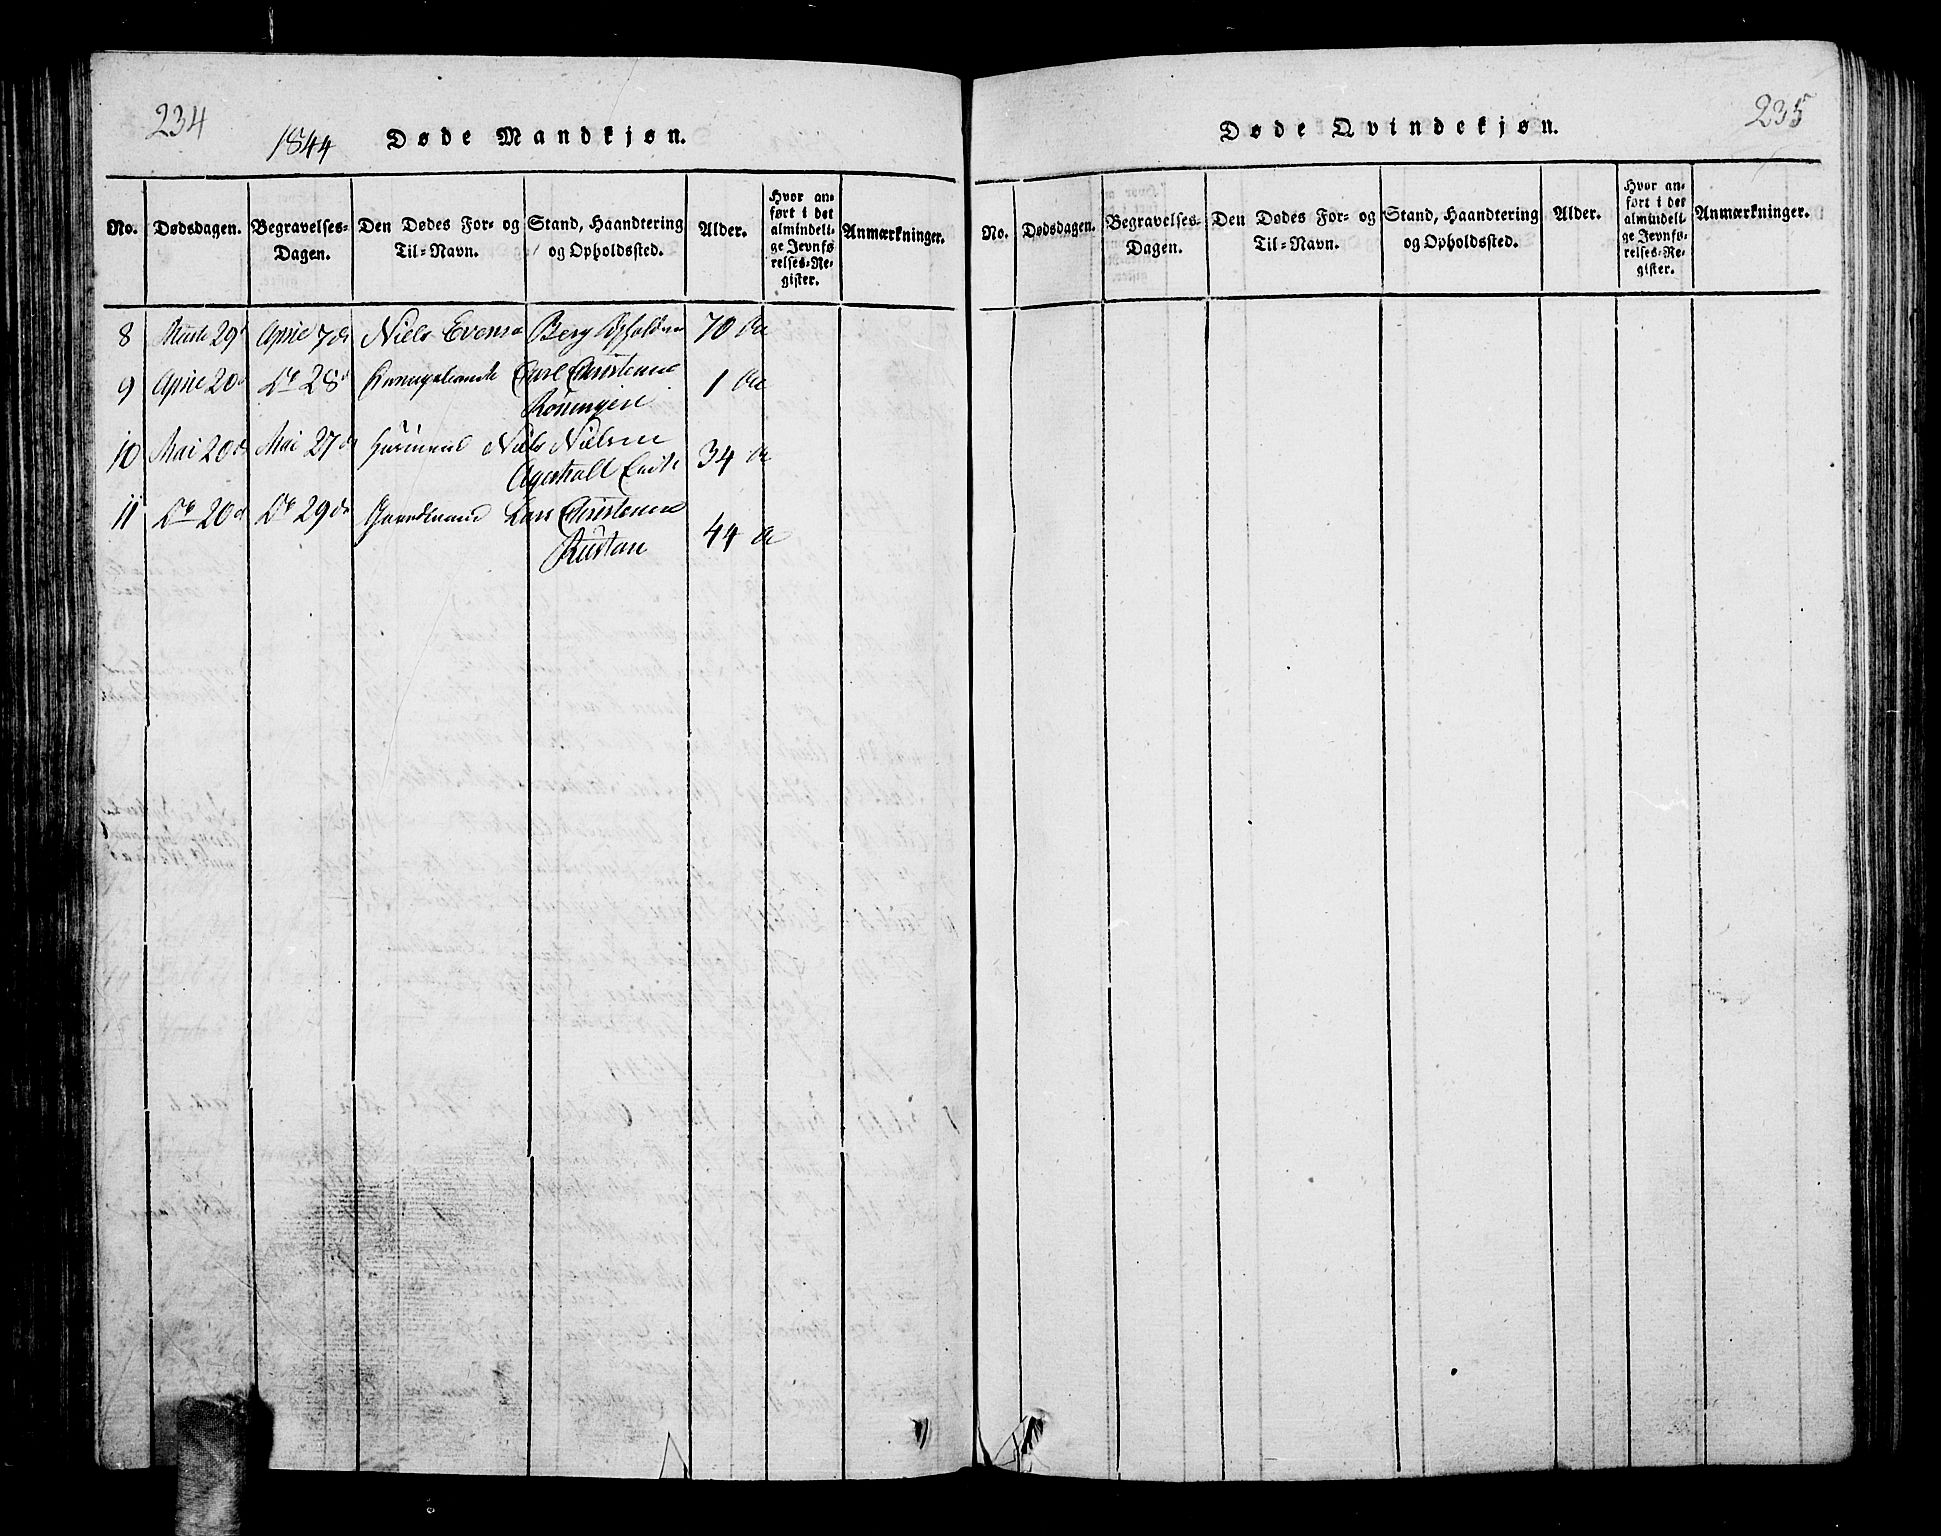 234
1844 Døde Mandkjøn.
No. Dødsdagen. Begravelses-Dagen. Den Dødes For- og Til-Navn. Stand, Haandtering og Opholdssted. Alder. Hvor anført i det almindelige Jevnførelses-Register. Anmærkninger.
8 29 April 7d Niels Evens Berg 70 Aar
9 April 20d Do 28d Carl Christensen 1 Aar
10 Mai 20d Mai 27d Huusmand Niels Nielsen 34 Aar
Agerholt
11 Do 20d Do 29d Gaardmand Lars Christensen 44 Aar
Rustan
235
Døde Qvindekjøn.
No. Dødsdagen. Begravelses-Dagen. Den Dødes For- og Til-Navn. Stand, Haandtering og Opholdssted. Alder. Hvor anført i det almindelige Jevnførelses-Register. Anmærkninger.